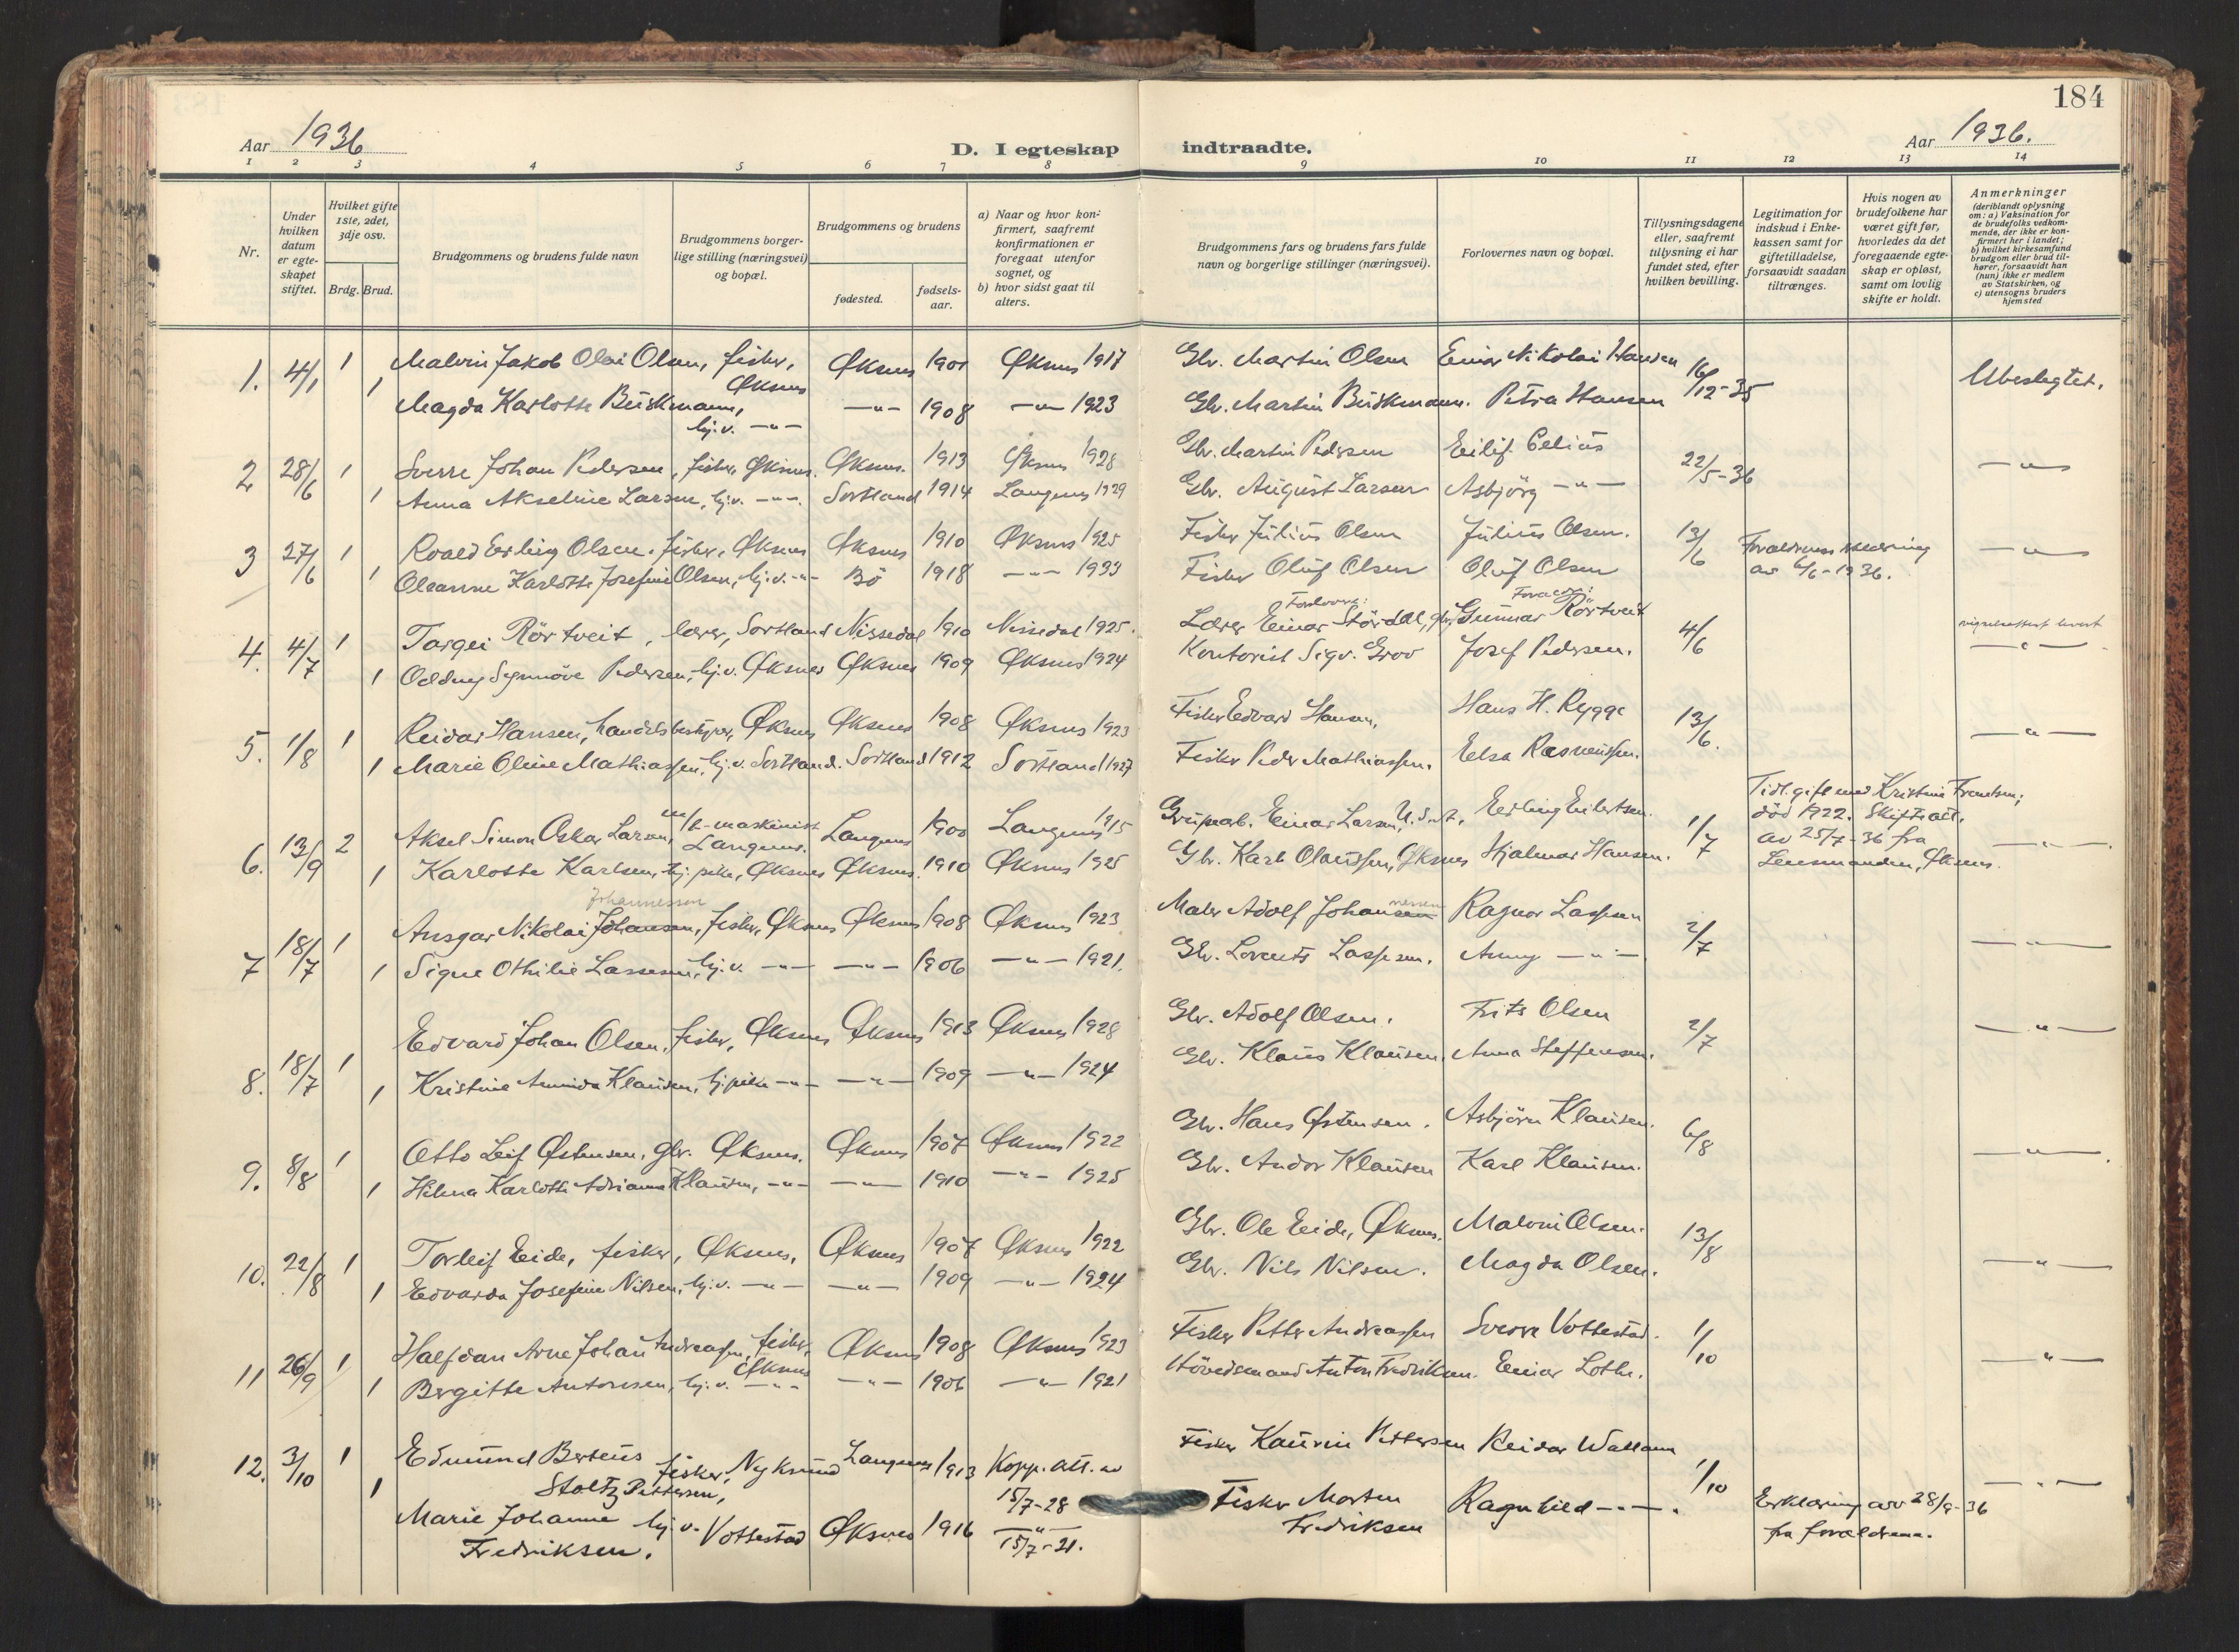 184
Aar 1936
D. I egteskap indtraadte.
Aar 1936.
1 2 3 4 5 6 7 8 9 10 11 12 13 14
Nr.
Under hvilken datum er egteskapet stiftet.
Hvilket gifte 1ste, 2det, 3dje osv.
Brdg. Brud.
Brudgommens og brudens fulde navn
Brudgommens borgerlige stilling (næringsvei) og bopæl.
Brudgommens og brudens
fødested.
fødselsaar.
a) Naar og hvor konfirmert, saafremt konfirmationen er foregaat utenfor sognet, og
b) hvor sidst gaat til alters.
Brudgommens fars og brudens fars fulde navn og borgerlige stillinger (næringsvei).
Forlovernes navn og bopæl.
Tillysningsdagene eller, saafremt tillysning ei har fundet sted, efter hvilken bevilling.
Legitimation for indskud i Enkekassen samt for giftetilladelse, forsaavidt saadan tiltrænges.
Hvis nogen av brudefolkene har været gift før, hvorledes da det foregaaende egteskap er opløst, samt om lovlig skifte er holdt.
Anmerkninger (deriblandt oplysning om: a) Vaksination for de brudefolks vedkommende, der ikke er konfirmert her i landet; b) hvilket kirkesamfund brudgom eller brud tilhører, forsaavidt han (hun) ikke er medlem av Statskirken, og c) utensogns bruders hjemsted
1. 4/1 1 Malvin Jakob Olai Olsen, fisker, Øksnes Øksnes 1901 Øksnes 1917 Gbr. Martin Olsen Einar Nikolai Hansen 16/12-35 Ubeslegtet.
1 Magda Karlotte Buskmann, hj.v. -"- -"- 1908 -"- 1923 Gbr. Martin Buskmann. Petra Hansen
2 28/6 1 Sverre Johan Pedersen, fisker, Øksnes. Øksnes. 1913 Øksnes 1928 Gbr. Martin Pedersen Eilif Celius 22/5-36 -"-
1 Anna Akseline Larsen, hj.v. -"-. Sortland 1914 Langenes 1929 Gbr. August Larsen Asbjörg -"-
3 27/6 1 Roald Erling Olsen, fisker, Øksnes Øksnes 1910 Øksnes 1925 Fisker Julius Olsen Julius Olsen. 13/6 Foreldrenes erklæring av 6/6-1936. -"-
1 Oleanne Karlotte Josefine Olsen, hj.v. -"- Bö 1918 -"- 1933 Fisker Oluf Olsen Oluf Olsen
4. 4/7 1 Targei Rörtveit, lærer, Sortland Nissedal 1910 Nissedal 1925. Lærer Einar Stördal, Gunnar Rörtveit 4/6 -"-
1 Oddny Synnöve Pedersen, hj.v. Øksnes Øksnes 1909 Øksnes 1924 Kontorist Sigv. Grov Josef Pedersen.
5. 1/8 1 Reidar Hansen, handelsbestyrer, Øksnes Øksnes 1908 Øksnes 1923 Fisker Edvard Hansen, Hans H. Rygge 13/6. -"-
1 Marie Oline Mathiassen, hj.v. Sortland. Sortland 1912 Sortland 1927 Fisker Peder Mathiassen. Elsa Rasmussen.
6. 13/9 2 Aksel Simon Oskar Larsen, m/k-maskinist Langenes. Langenes 1900 Langenes 1915 Grubearb. Einar Larsen, U.S.A. Erling Eilertsen. 1/7 Tidl. gift med Kristine Frantsen, död 1922. Skifteatt. av 25/7-36 fra Lensmanden, Øksnes. -"-
1 Karlotte Karlsen, hj. pike, Øksnes Øksnes. 1910 Øksnes 1925 Gbr. Karl Olaussen, Øksnes Hjalmar Hansen.
Johannessen
7 18/7 1 Ansgar Nikolai Johansen, fisker, Øksnes Øksnes 1908 Øksnes 1923 Maler Adolf Johansen nessen Ragnar Lassesen 2/7 -"-
1 Signe Othilie Lassesen, hj.v. -"- -"- 1906 -"- 1921. Gbr. Lorents Lassesen. Anny -"-
8. 18/7 1 Edvard Johan Olsen, fisker, Øksnes Øksnes 1913 Øksnes 1928 Gbr. Adolf Olsen. Frits Olsen 2/7 -"-
1 Kristine Arnida Klausen, hj.pike -"- -"- 1909 -"- 1924 Gbr. Klaus Klausen. Anna Steffensen.
9. 8/8 1 Otto Leif Østensen, gbr. Øksnes. Øksnes 1907 Øksnes 1922 Gbr. Hans Østensen. Asbjörn Klausen. 6/8 -"-
1 Hilma Karlotte Adriana Klausen, -"- -"- 1910 -"- 1925 Gbr. Andor Klausen Karl Klausen.
10. 22/8 1 Torleif Eide, fisker, Øksnes, Øksnes 1907 Øksnes 1922 Gbr. Ole Eide, Øksnes. Malvin Olsen. 13/8 -"-
1 Edvarda Josefine Nilsen, hj.v. -"- -"- 1909 -"- 1924 Gbr. Nils Nilsen. Magda Olsen.
11 26/9 1 Halfdan Arne Johan Andreassen, fisker, Øksnes Øksnes 1908 Øksnes 1923 Fisker Petter Andreassen Sverre Vottestad. 1/10 -"-
1 Bergitte Antonsen, hj.v. -"- -"- 1906 -"- 1921 Hövedsmand Anton Fredriksen. Einar Lothe.
12. 3/10 1 Edmund Berteus Stoltz Pettersen, fisker, Nyksund Langenes 1913 Kopp. att. av 15/7-28 Fisker Kaurin Pettersen Reidar Wattam 1/10 -"-
1 Marie Johanne Fredriksen. hj.v. Vottestad Øksnes 1916 -"- 15/7-21. Fisker Morten Fredriksen Ragnhild -"-. Erklæring av 28/9-36 fra forældrene.